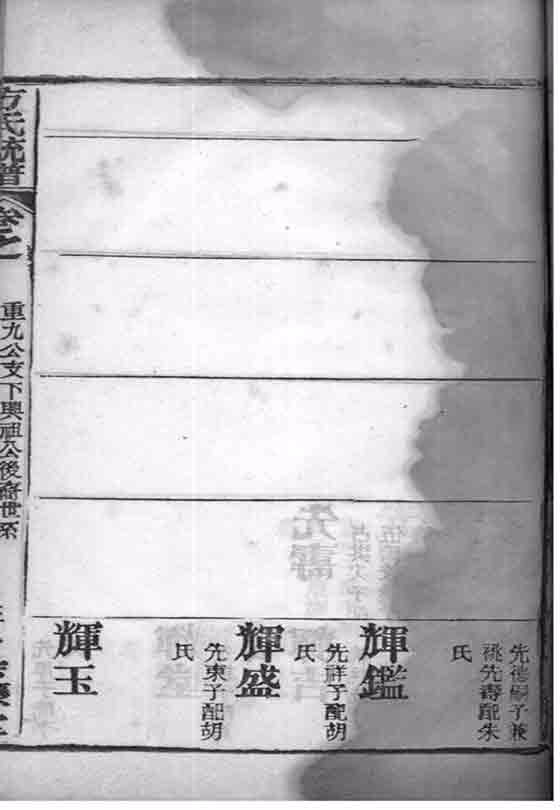 先德嗣子兼
祧先壽配朱
氏
輝鑑
先祥子配胡
氏
輝盛
先東子配胡
氏
輝玉
方氏統譜
卷之
重九公支下興祖公後裔世系